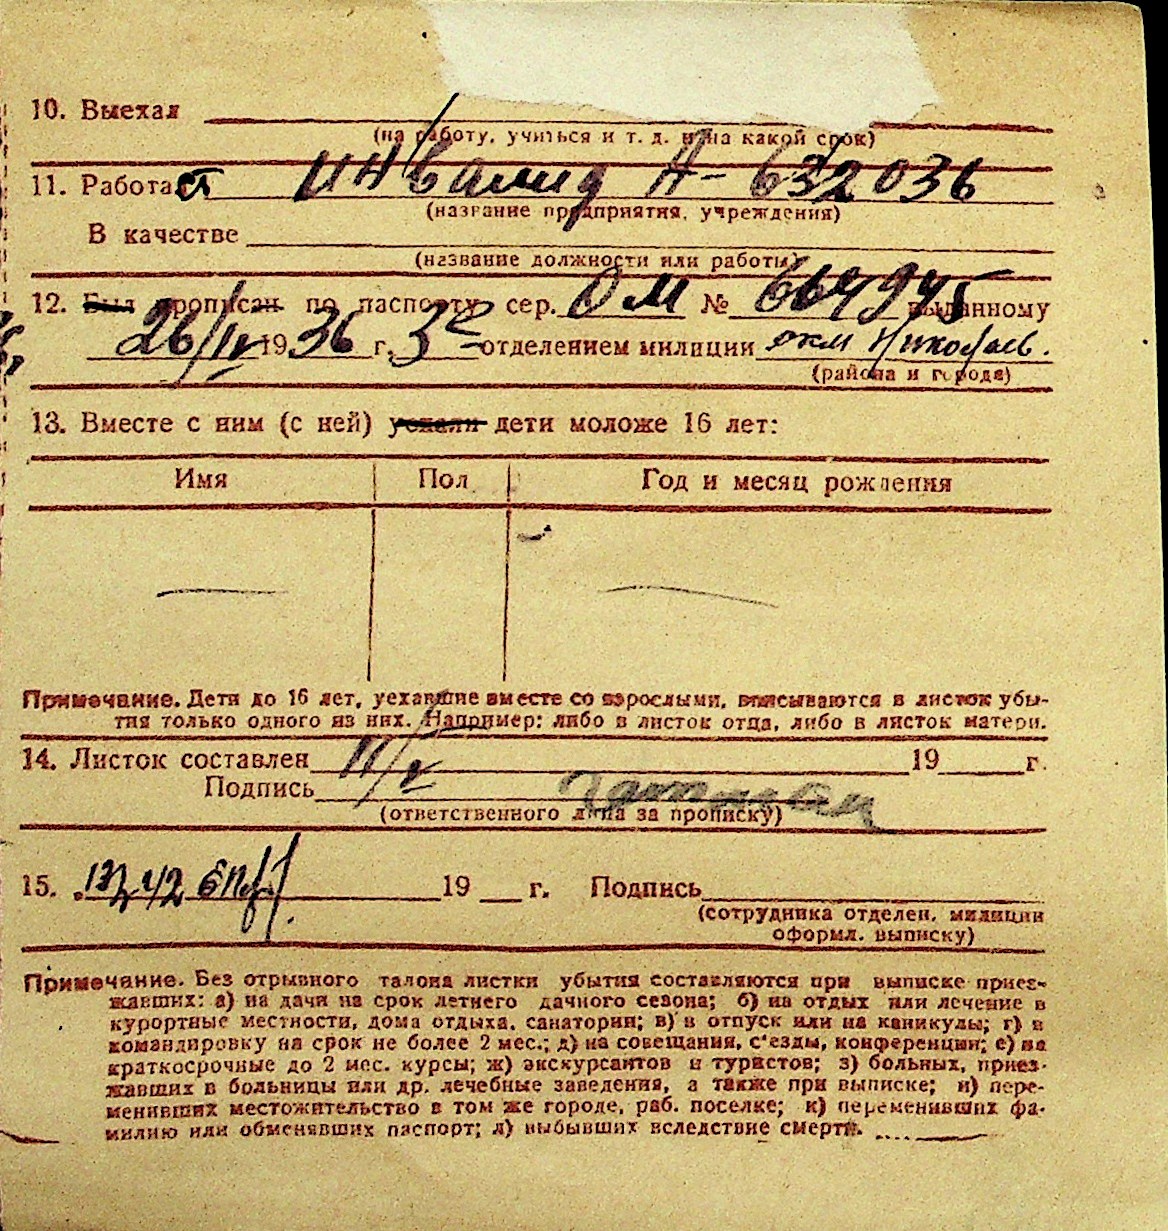 10. Выехал
(на работу, учиться и т. д. и на какой срок)
11. Работает инвалид А-632036
(название предприятия, учреждения)
В качестве
(название должности или работы)
12. Был прописан по паспорту сер. ОМ № 664945 выданному
26/IV 1936 г. 3е отделением милиции окм Николаев.
(района и города)
13. Вместе с ним (с ней) уехали дети моложе 16 лет:
Имя Пол Год и месяц рождения
Примечание. Дети до 16 лет, уехавшие вместе со взрослыми, вписываются в листок убы-
тия только одного из них. Например: либо в листок отца, либо в листок матери.
14. Листок составлен 11/V 19 г.
Подпись
(ответственного лица за прописку)
15. 42 19 г. Подпись
(сотрудника отделен. милиции
оформл. выписку)
Примечание. Без отрывного талона листки убытия составляются при выписке приез-
жавших: а) на дачи на срок летнего дачного сезона; б) на отдых или лечение в
курортные местности, дома отдыха, санатории; в) в отпуск или на каникулы; г) в
командировку на срок не более 2 мес.; д) на совещания, с'езды, конференции; е) на
краткосрочные до 2 мес. курсы; ж) экскурсантов и туристов; з) больных, приез-
жавших в больницы или др. лечебные заведения, а также при выписке; и) пере-
менивших местожительство в том же городе, раб. поселке; к) переменивших фа-
милию или обменявших паспорт; л) выбывших вследствие смерти.